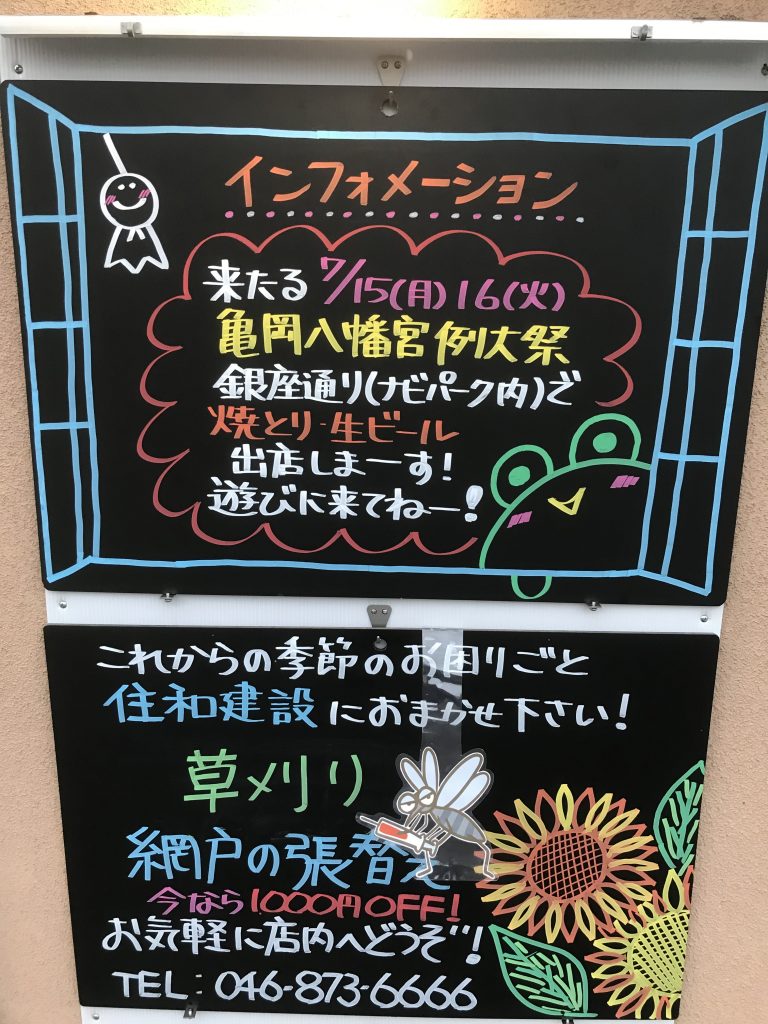 インフォメーション
来たる 7/15(月)16(火)
亀岡八幡宮例大祭
銀座通り(ナビパーク内)で
焼とり・生ビール
出店しまーす!
遊びに来てねー!
これからの季節のお困りごと
住和建設におまかせ下さい!
草刈り
網戸の張替え
今なら1000円OFF!
お気軽に店内へどうぞ!
TEL:046-873-6666